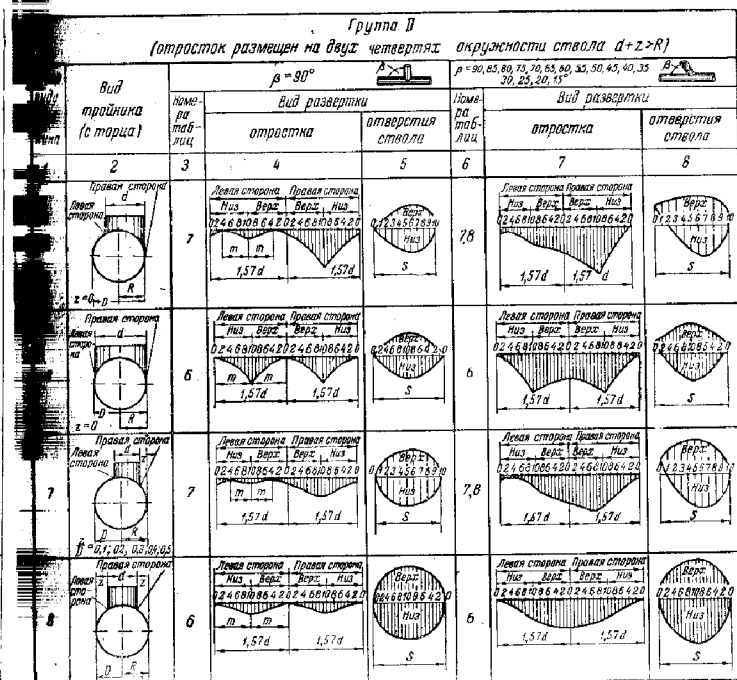 Группа II
(отросток размещен на двух четвертях окружности ствола d+z>R)
Вид
тройника
(с торца)
β=90°
β
β=90,85,80,75,70,65,60,55,50,45,40,35
30,25,20,15°
β
Номе-
ра
таб-
лиц
Вид развертки
отростка
отверстия
ствола
Номе-
ра
таб-
лиц
Вид развертки
отростка
отверстия
ствола
2 3 4 5 6 7 8
Правая сторона
d
Левая
сторона
R
7
Левая сторона Правая сторона
Низ Верх Верх Низ
02468108642024681086420
m m
1,57d 1,57d
Верх
012345678910
Низ
S
7,8
Левая сторона Правая сторона
Низ Верх Верх Низ
02468108642024681086420
1,57d 1,57 d
Верх
012345678910
Низ
S
Правая сторона
d
Левая
сторо-
на
D R
z=0
6
Левая сторона Правая сторона
Низ Верх Верх Низ
02468108642024681086420
m m
1,57d 1,57d
Верх
024681086420
Низ
S
6
Левая сторона Правая сторона
Низ Верх Верх Низ
02468108642024681086420
1,57d 1,57d
Верх
024681086420
Низ
S
7
Правая сторона
Левая
сторона
d z
D R
z/D=0,1; 0,2; 0,3; 0,4; 0,5
7
Левая сторона Правая сторона
Низ Верх Верх Низ
02468108642024681086420
m m
1,57d 1,57d
Верх
012345678910
Низ
S
7,8
Левая сторона Правая сторона
Низ Верх Верх Низ
02468108642024681086420
1,57d 1,57d
Верх
012345678910
Низ
S
8
Правая сторона
z d z
Левая
сто-
рона
D R
6
Левая сторона Правая сторона
Низ Верх Верх Низ
02468108642024681086420
m m
1,57d 1,57d
Верх
024681086420
Низ
S
6
Левая сторона Правая сторона
Низ Верх Верх Низ
02468108642024681086420
1,57d 1,57d
Верх
024681086420
Низ
S